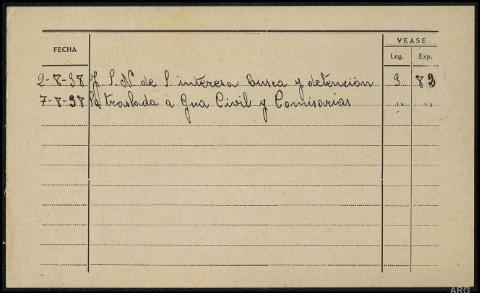 VEASE
FECHA Leg. Exp.
2-8-38 J. S. N. de S. interesa busca y detención 3 83
7-8-38 Se traslada a Gua Civil y Comisarias " "
ARG